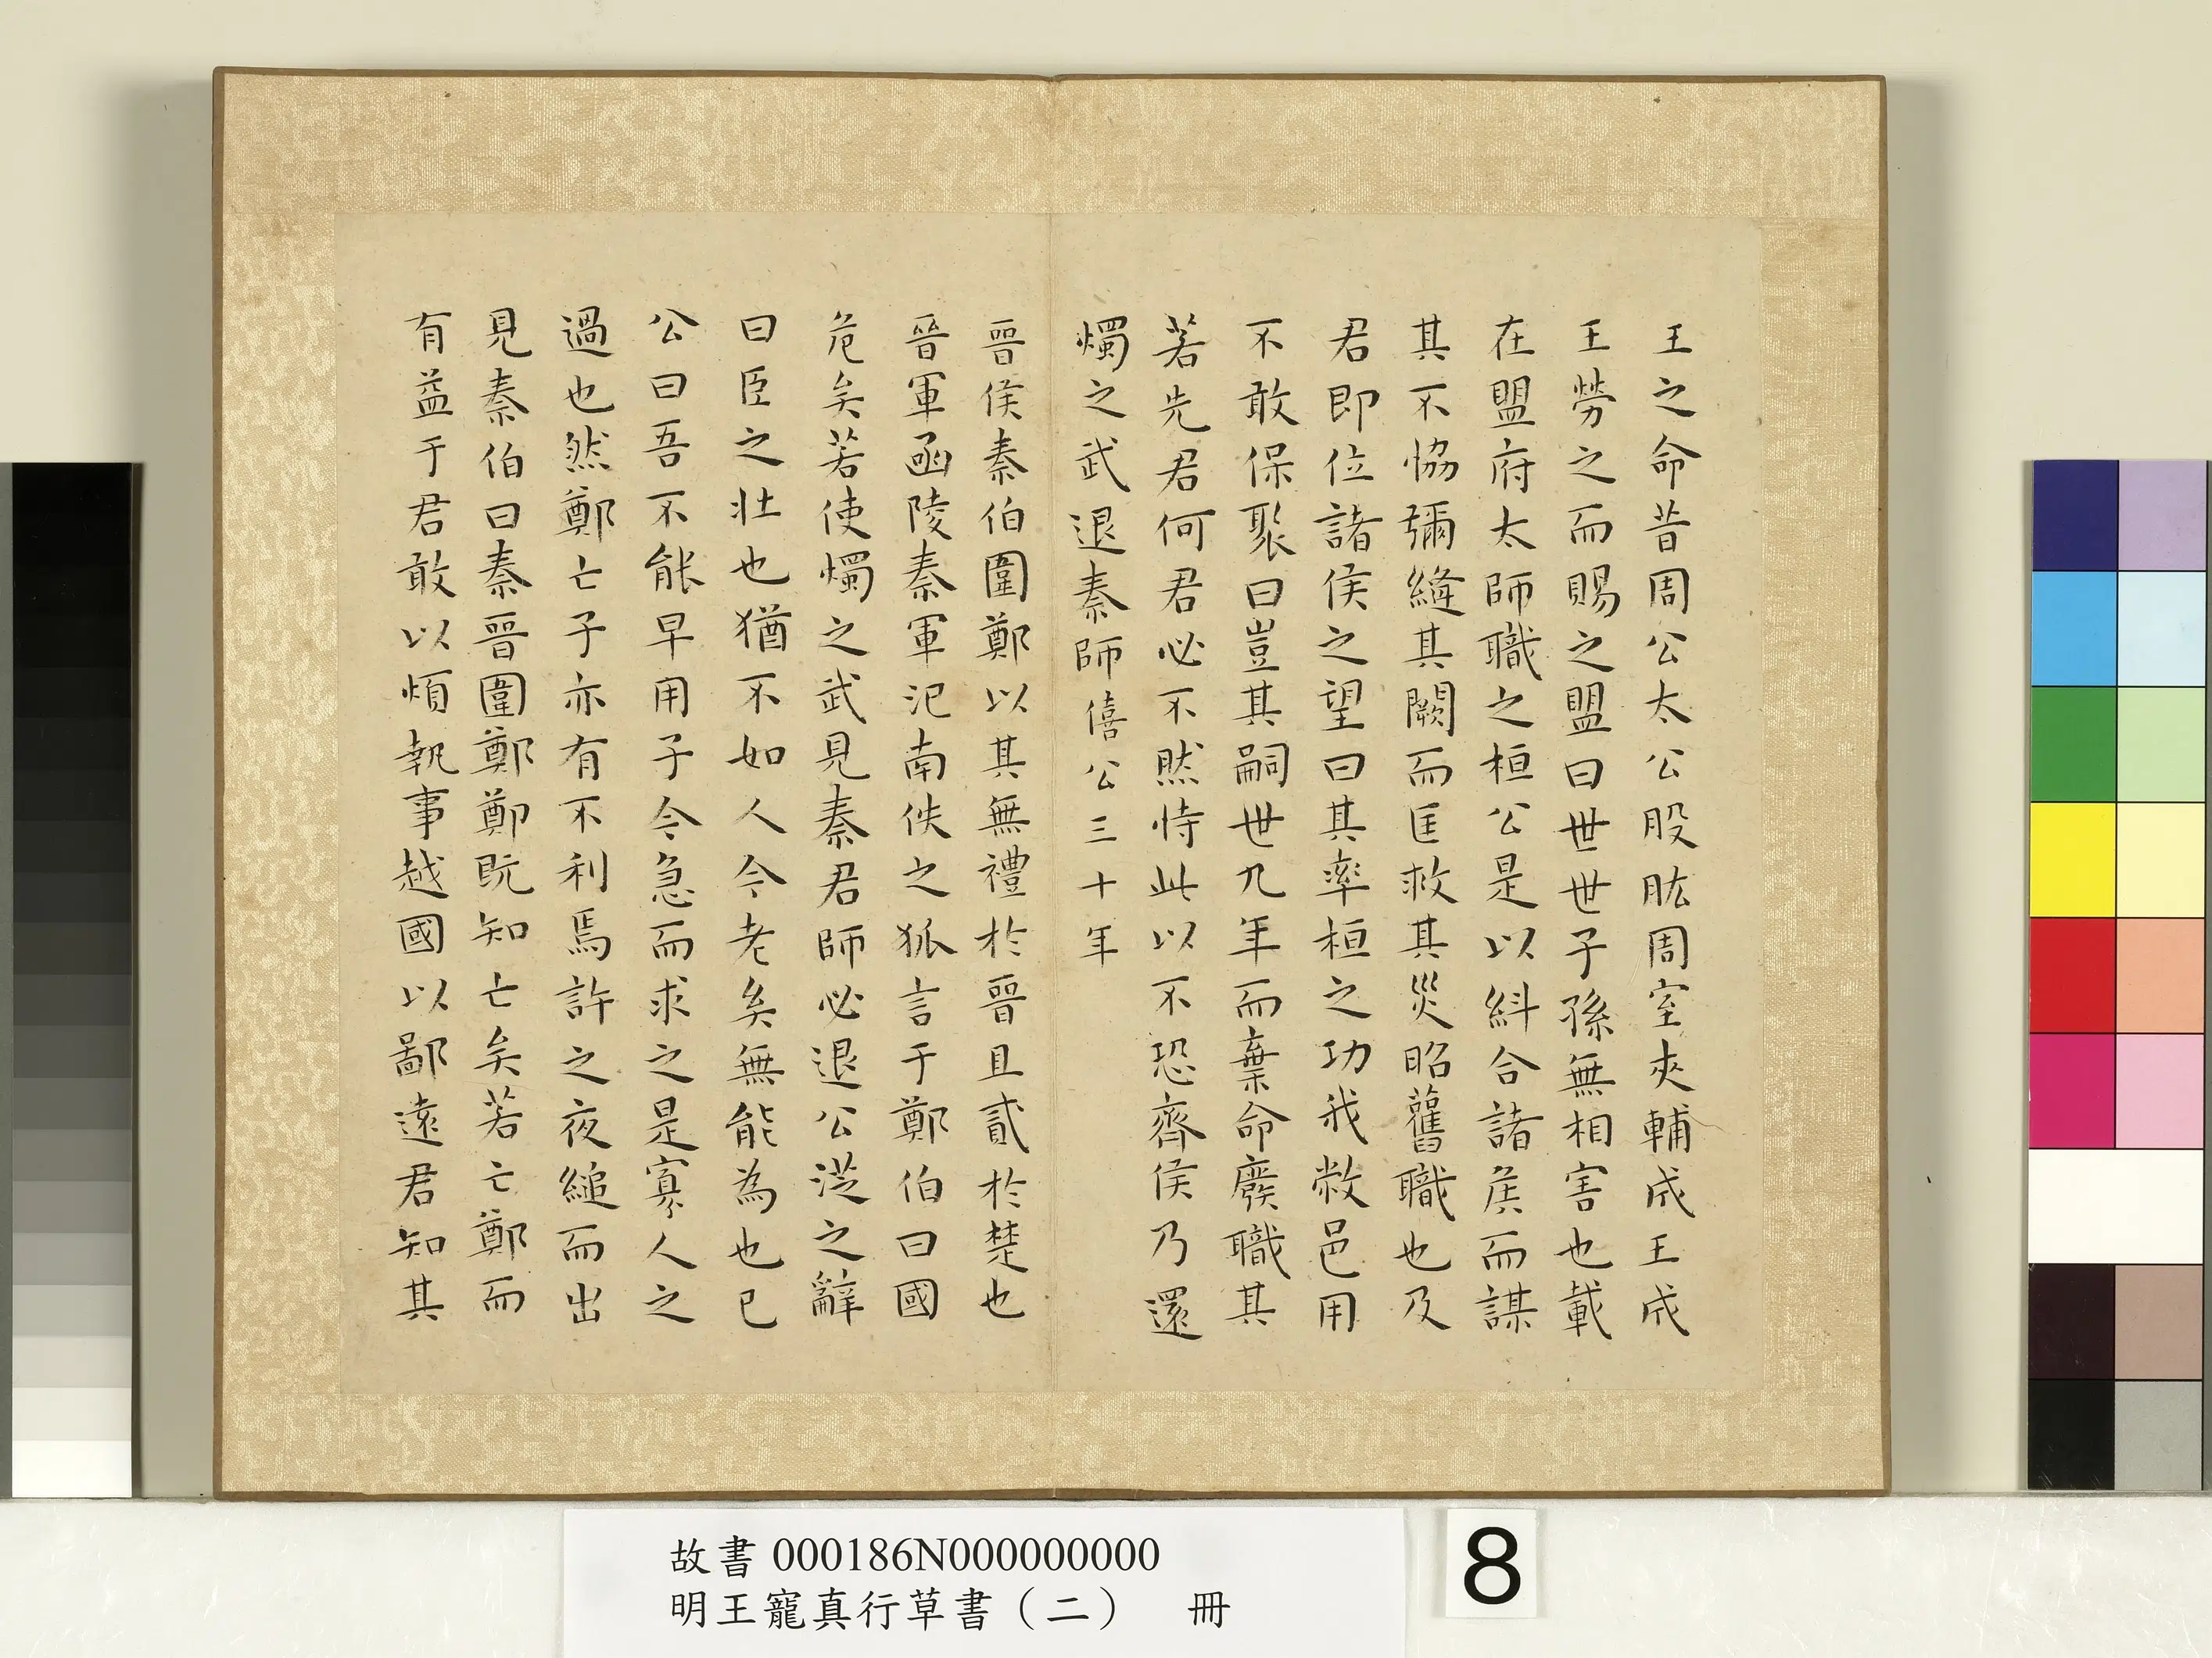 王之命昔周公太公股肱周室夾輔成王成
王勞之而賜之盟曰世世子孫無相害也載
在盟府太師職之桓公是以糾合諸侯而謀
其不恊彌縫其闕而匡救其災昭舊職也及
君即位諸侯之望曰其率桓之功我敝邑用
不敢保聚曰豈其嗣世九年而棄命廢職其
若先君何君必不然恃此以不恐齊侯乃還
燭之武退秦師僖公三十年
晉侯秦伯圍鄭以其無禮於晉且貳於楚也
晉軍函陵秦軍氾南佚之狐言于鄭伯曰國
危矣若使燭之武見秦君師必退公從之辭
曰臣之壯也猶不如人今老矣無能為也已
公曰吾不能早用子今急而求之是寡人之
過也然鄭亡子亦有不利焉許之夜縋而出
見秦伯曰秦晉圍鄭鄭既知亡矣若亡鄭而
有益于君敢以煩執事越國以鄙遠君知其
故書000186N000000000
明王寵真行草書（二） 冊
8